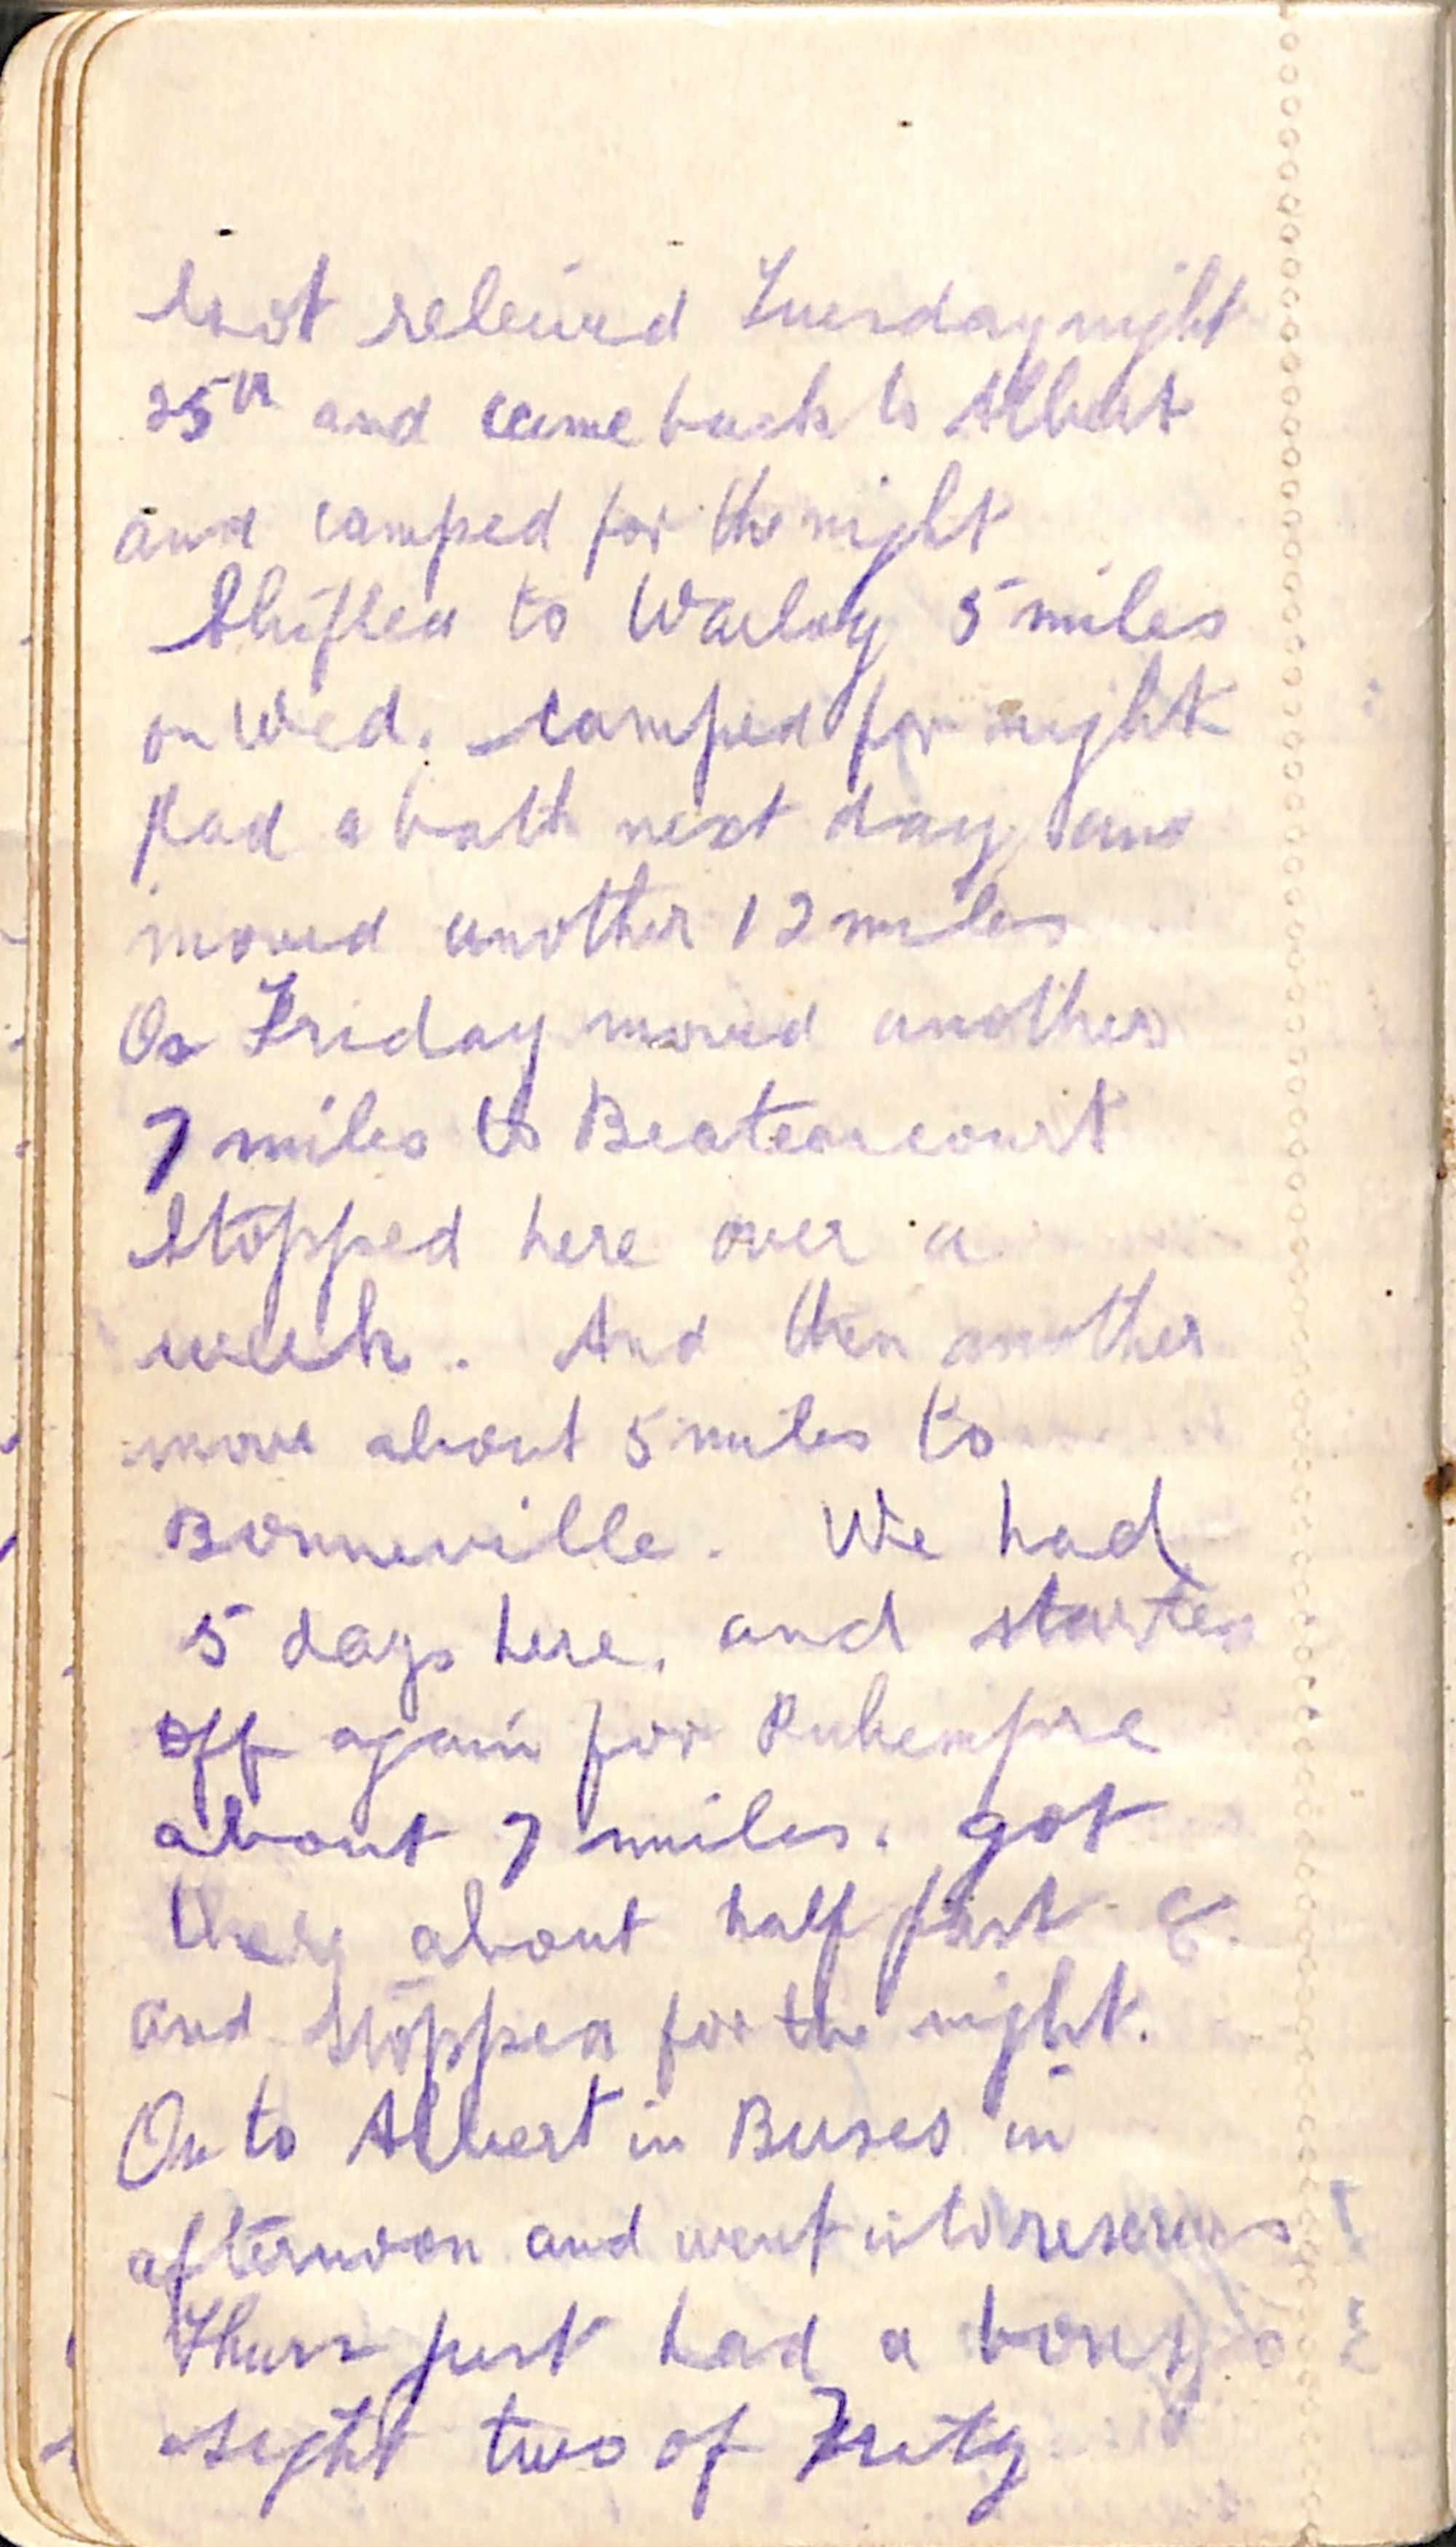 Got releived Tuesday night
25th and came back to Albert
and camped for the night
Shifted to Warloy 5 miles
on Wed. camped for night
Had a bath next day and
moved another 12 miles
On Friday moved another
7 miles to Beateaucourt
Stopped here over a
week. And then another
move about 5 miles to
Bonneville. We had
5 days here. and started
off again for Ruhempre
about 7 miles. got
there about half past
and stopped for the night.
On to Albert in Buses in
afternoon and went into reserves
Thurs just had a
sight two of Fritz